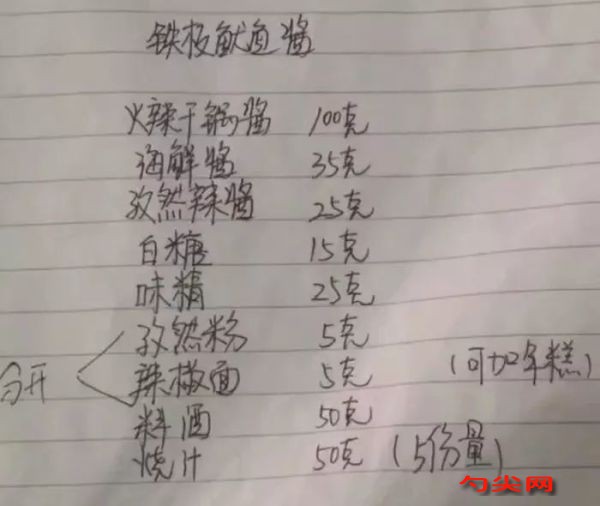 铁板鱿鱼酱
火辣干锅酱 100克
海鲜酱 35克
孜然辣酱 25克
白糖 15克
味精 25克
孜然粉 5克
分开
辣椒面 5克 (可加年糕)
料酒 50克
烧汁 50克 (5份量)
勺尖网